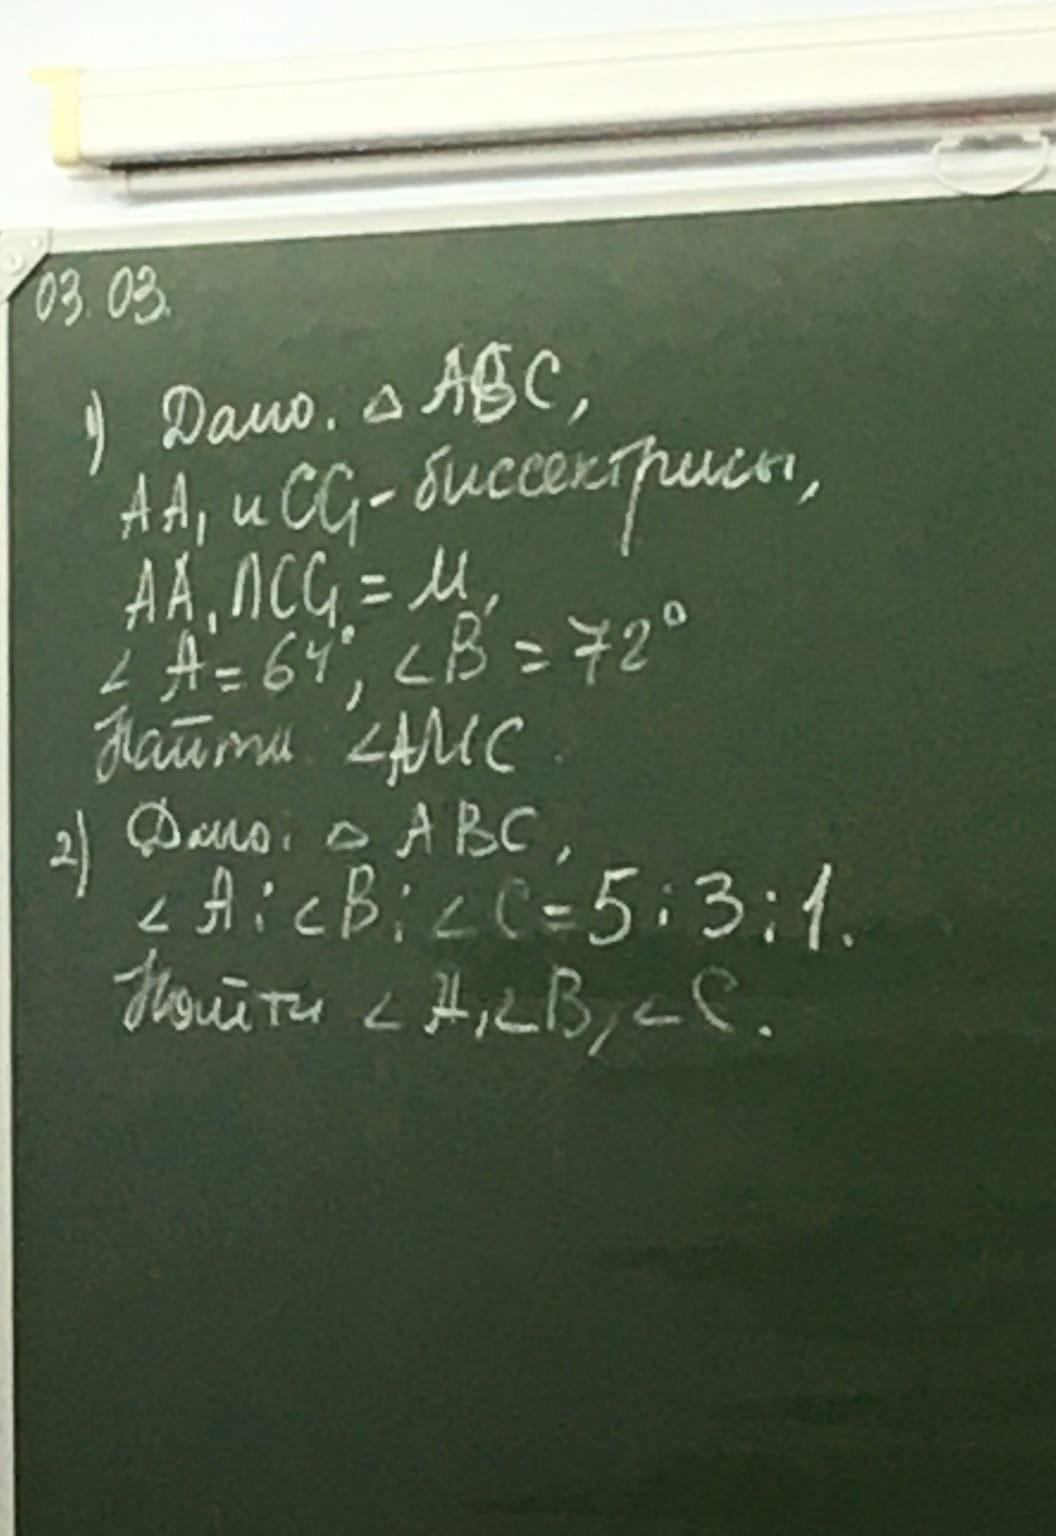 03.03.
1) Дано: △ ABC,
AA₁ и CC₁ - биссектрисы,
AA₁ ∩ CC₁ = M,
∠ A = 64°, ∠B = 72°
Найти ∠AMC.
2) Дано: △ ABC,
∠ A : ∠B : ∠ C = 5 : 3 : 1.
Найти ∠ A, ∠B, ∠ C.